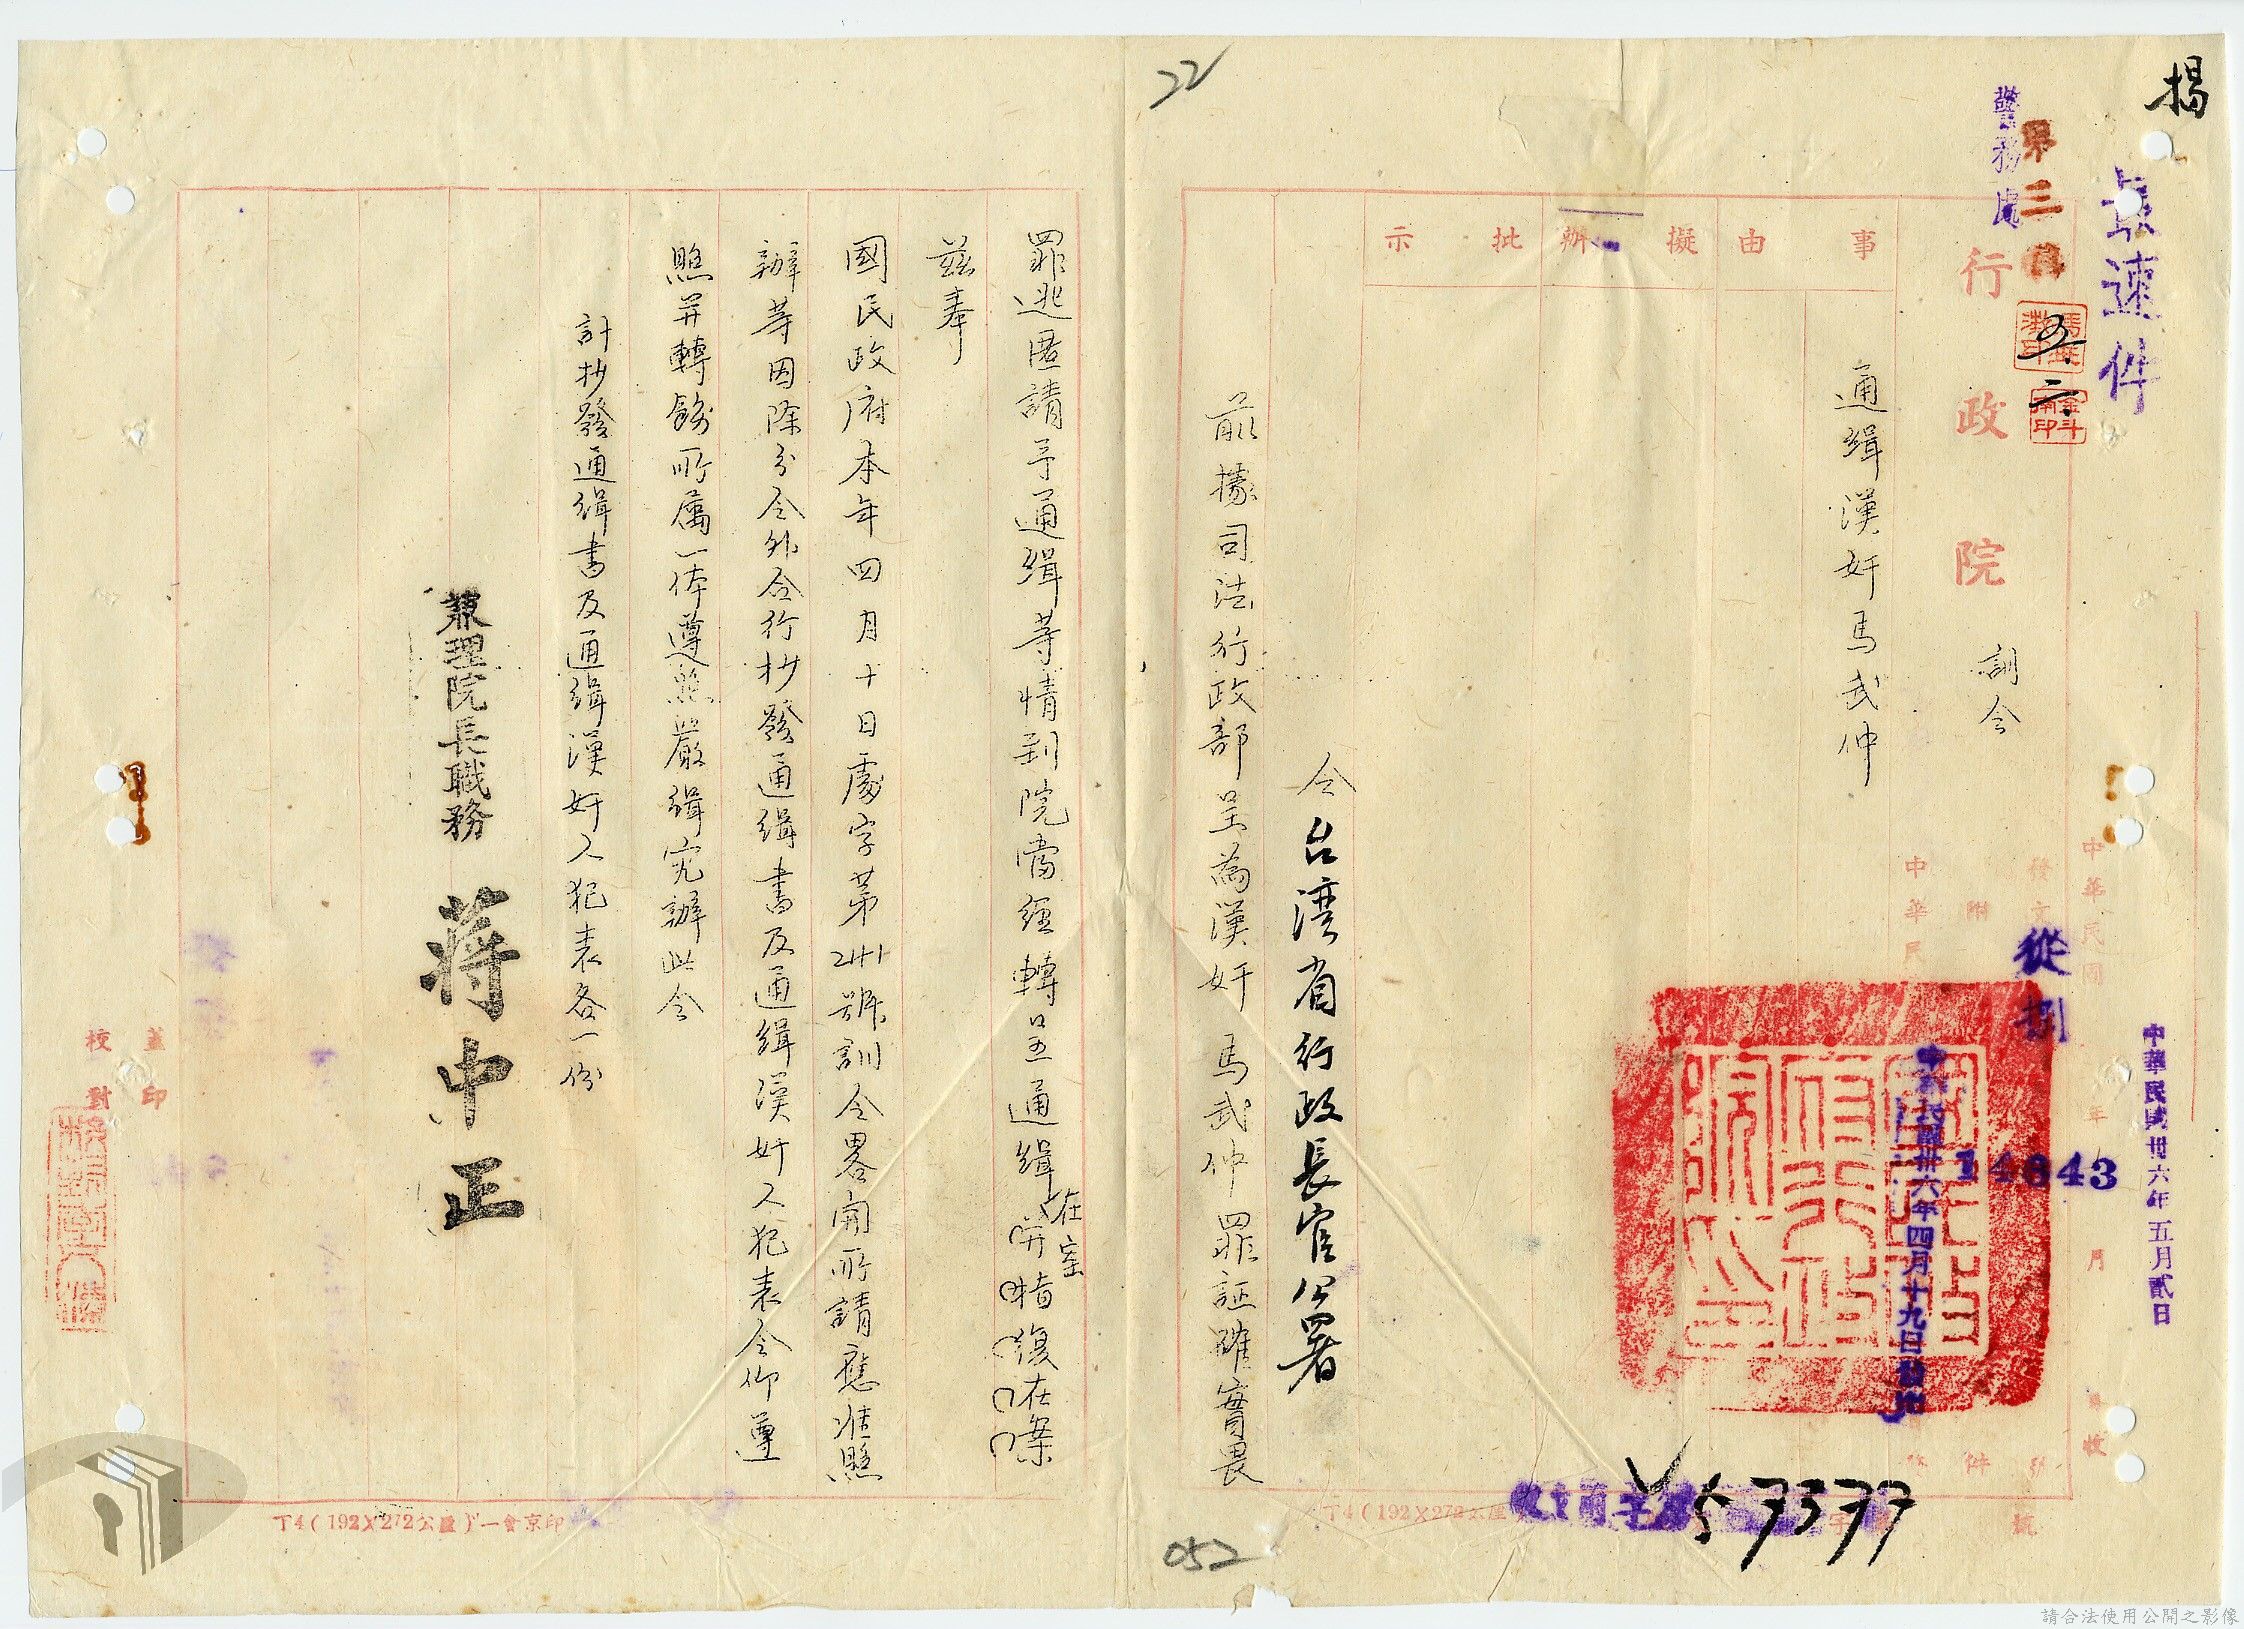 揭
最速件
中華民國卅六年五月貳日
中華民國
年
月
警務處
第三
五、二
行政院
訓令
發文
從捌
14643
附
件
中華民國卅六年四月十九日發出
事由
擬辦
批示
通緝漢奸馬武仲
57377
令台湾省行政長官公署
前據司法行政部呈為漢奸馬武仲罪証確實畏
罪逃匿請予通緝等情到院當經轉呈通緝在案
茲奉
國民政府本年四月十日處字第241號訓令畧開所請應准照
辦等因除分令外合行抄發通緝書及通緝漢奸人犯表令仰遵
照并轉飭所屬一体遵照嚴緝究辦此令
計抄發通緝書及通緝漢奸人犯表各一份
兼理院長職務 蔣中正
蓋印
校對
22
052
丁4(192X272公厘)
丁4(192X272公厘)
京印
請合法使用公開之影像